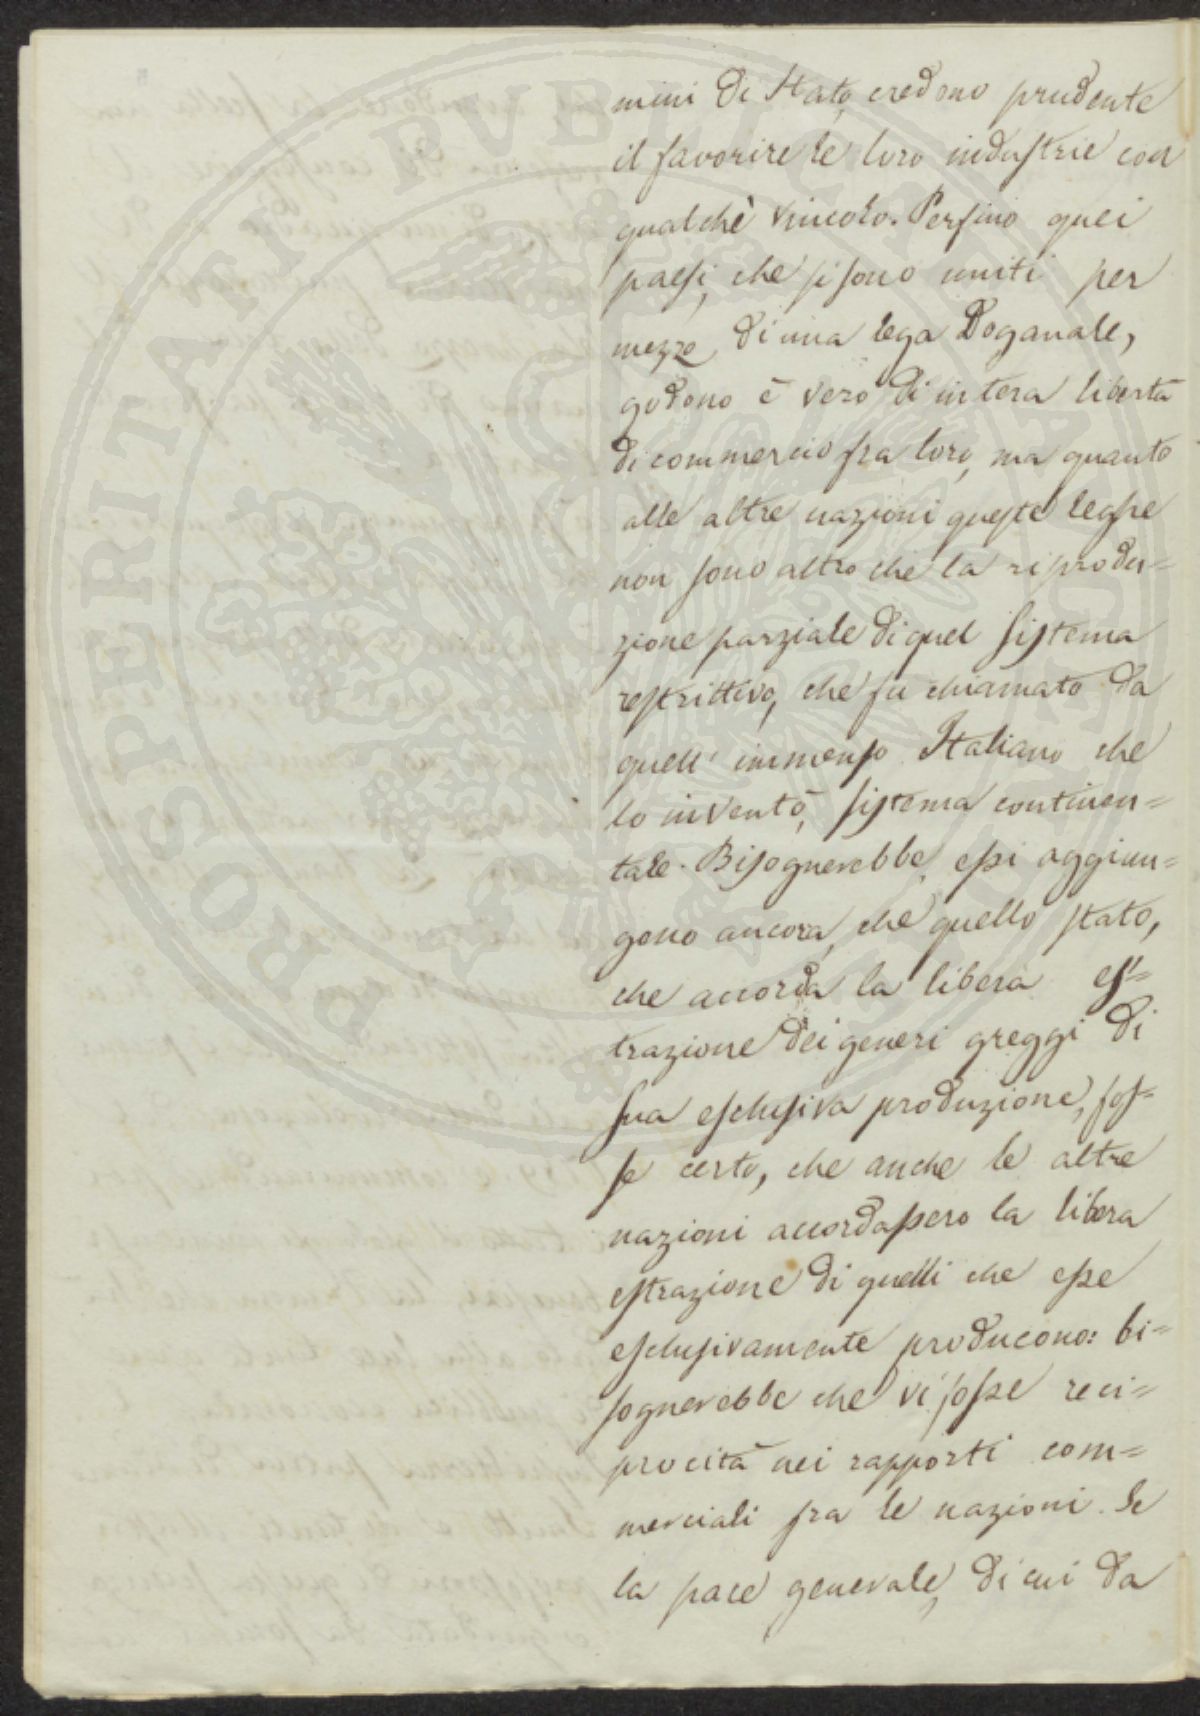 mini di Stato, credono prudente
il favorire le loro industrie con
qualche vincolo. Perfino quei
paesi, che si sono uniti per
mezzo di una lega Doganale,
godono è vero di intera libertà
di commercio fra loro, ma quanto
alle altre nazioni queste leghe
non sono altro che la riprodu=
zione parziale di quel sistema
restrittivo, che fu chiamato da
quell' immenso Italiano che
lo inventò, sistema continen=
tale. Bisognerebbe, essi aggiun=
gono ancora, che quello stato,
che accorda la libera es=
trazione dei generi greggi di
sua esclusiva produzione, fos=
se certo, che anche le altre
nazioni accordassero la libera
estrazione di quelli che esse
esclusivamente producono: bi=
sognerebbe che vi fosse reci=
procità nei rapporti com=
merciali fra le nazioni. Se
la pace generale, di cui da
PROSPERITATI PVBLICAE